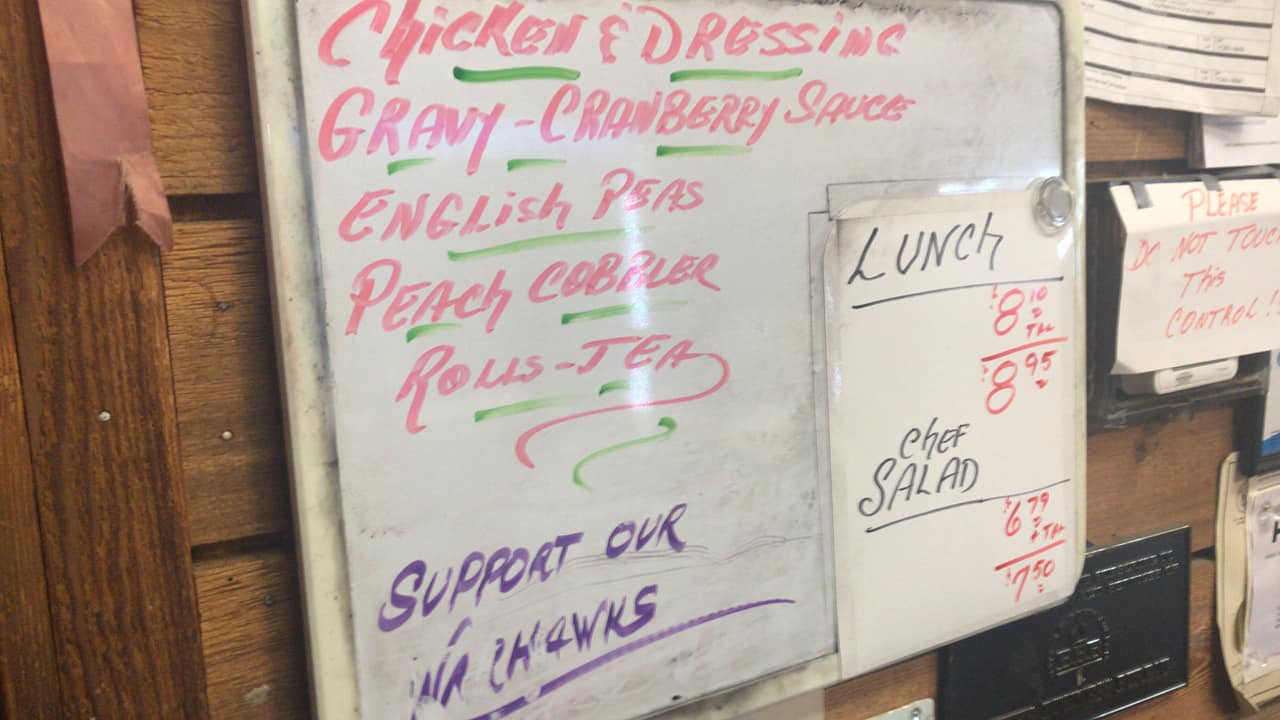 Chicken & Dressing
Gravy - Cranberry Sauce
English Peas
Peach Cobbler
Rolls - Tea
Support Our
Lunch
$8 10
Tax
$8 95
Chef
Salad
$6 79
+ Tax
$7 50
Please
Do Not Touc
This
Control!